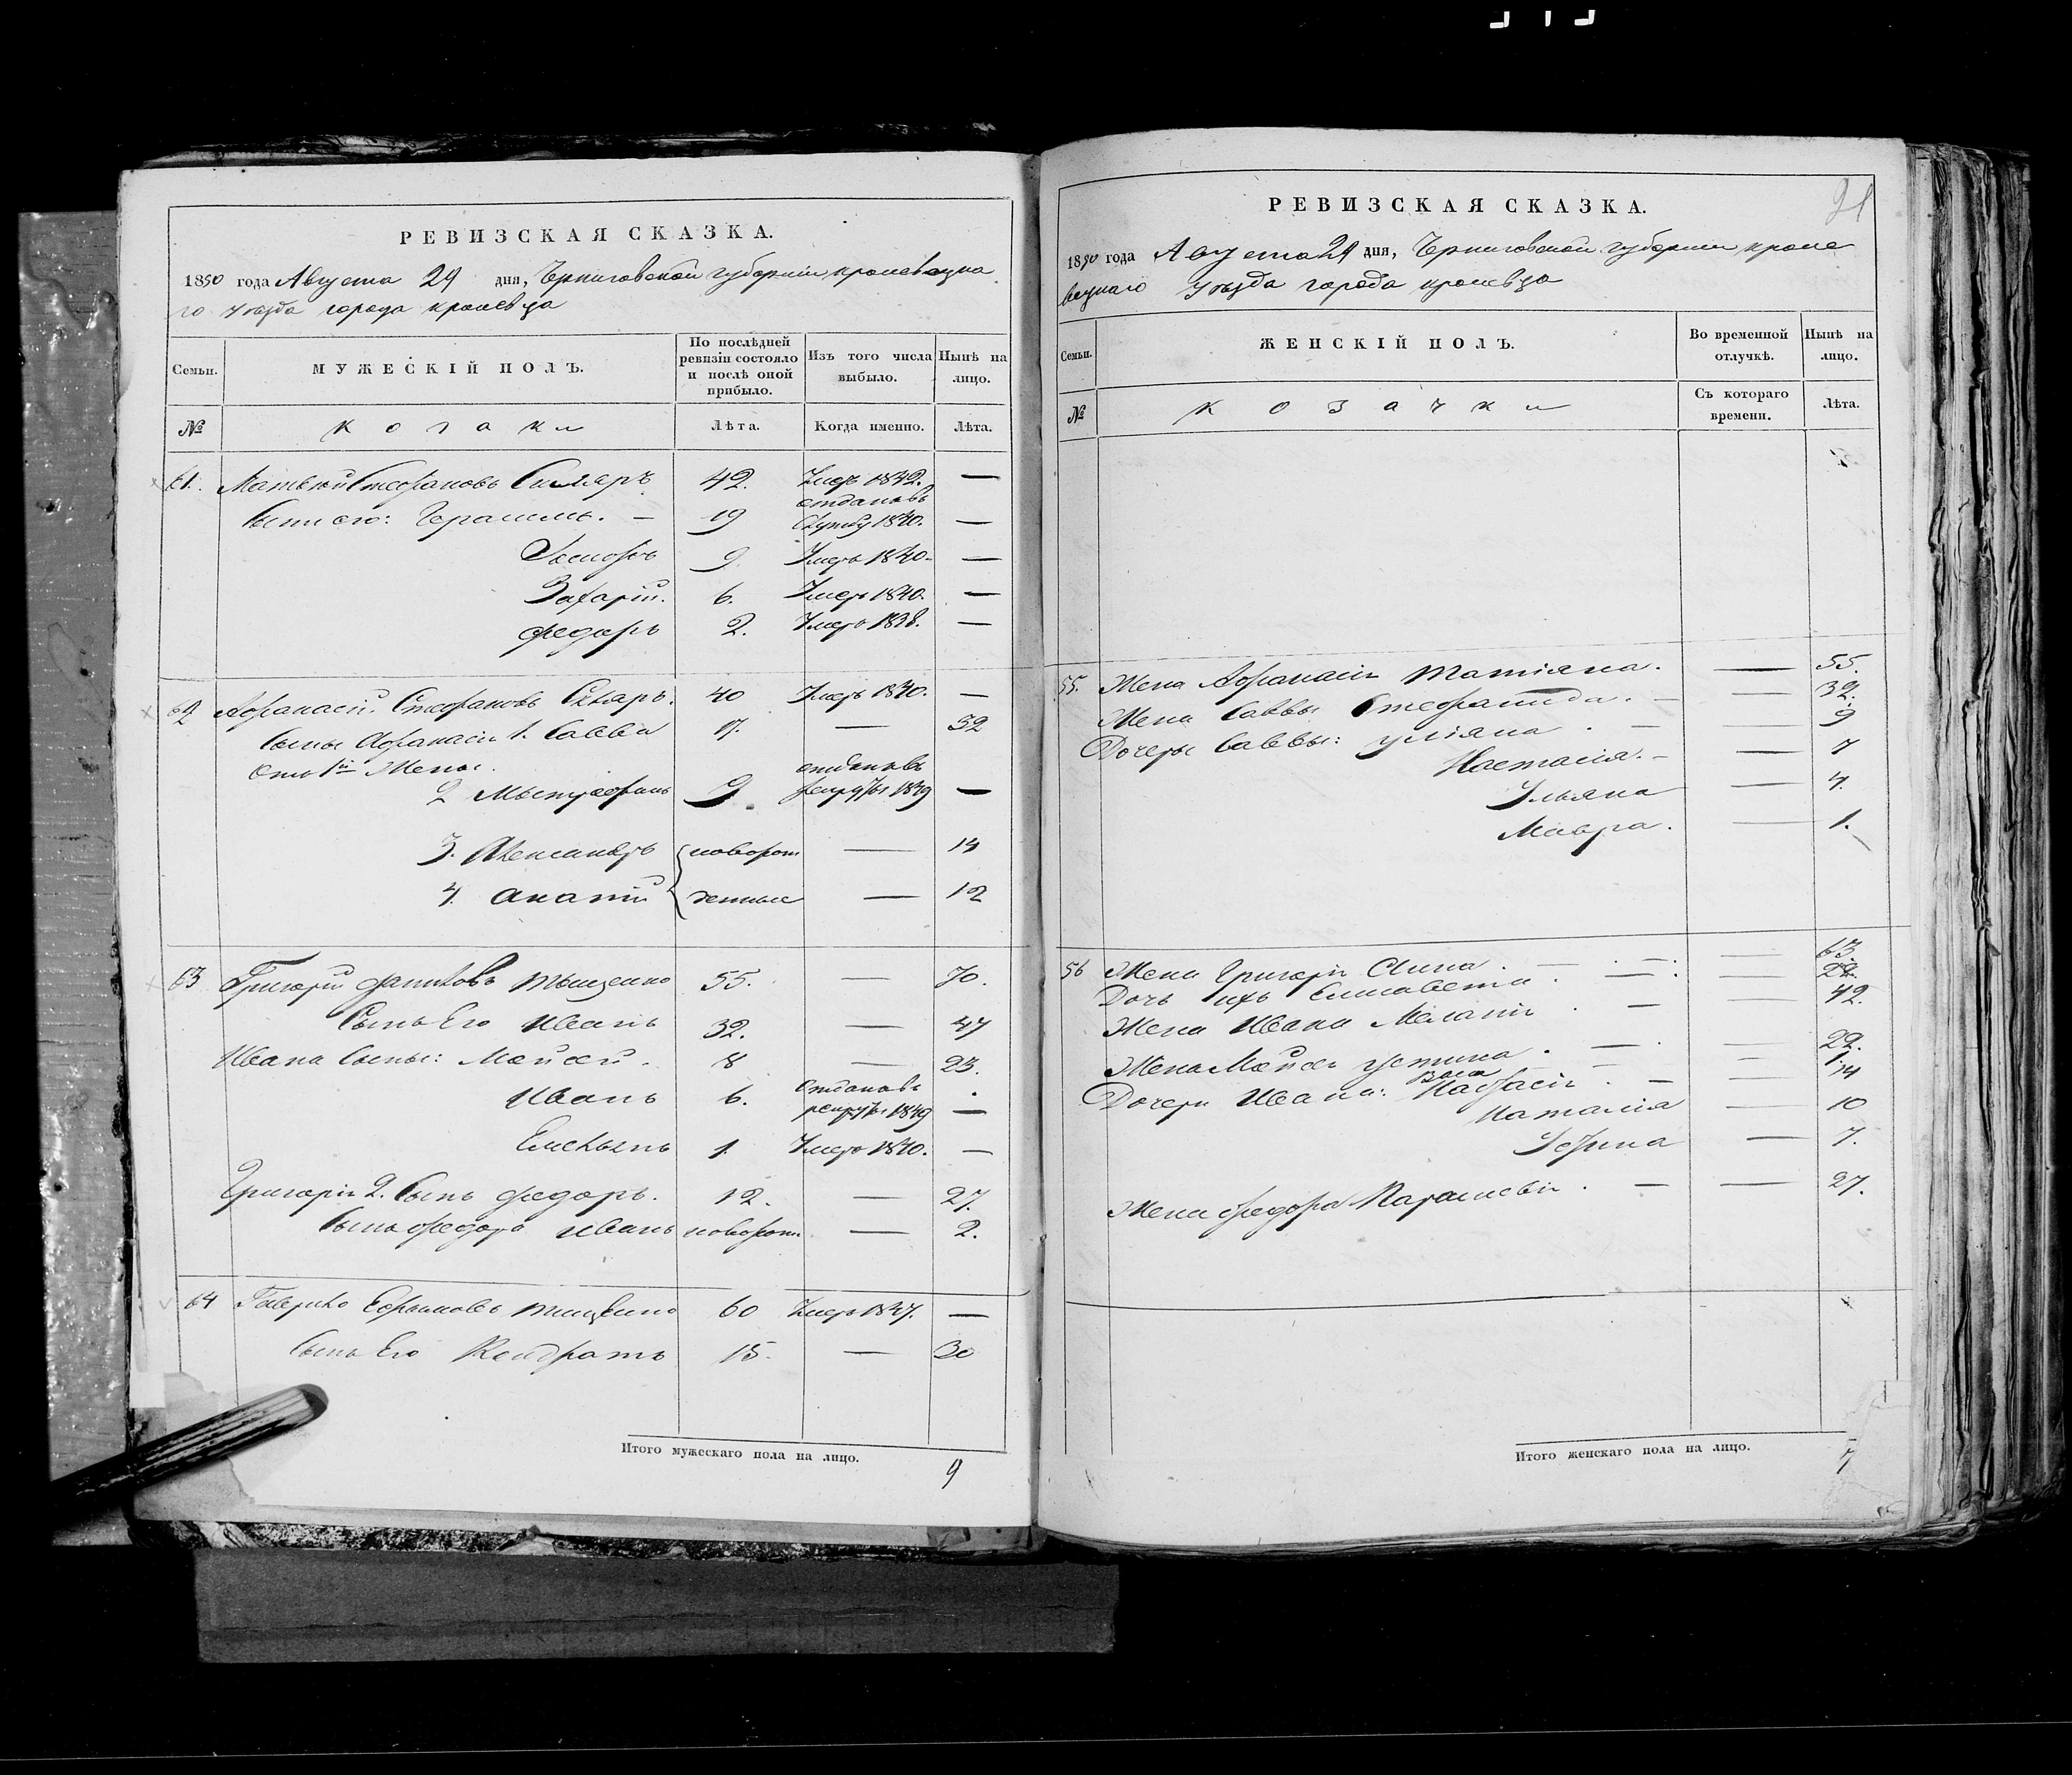 РЕВИЗСКАЯ СКАЗКА.
1850 года Августа 29 дня, Черниговской губернии кролевецка
го уезда города кролевца
Семьи.
МУЖЕСКІЙ ПОЛЪ.
По послѣдней ревизіи состояло и послѣ оной прибыло.
Изъ того числа выбыло.
Нынѣ на лицо.
№
Козаки
Лѣта.
Когда именно.
Лѣта.
61. Матвей Стефановъ Скляръ 42. Умеръ 1842. —
Сыни его: Герасимъ. — 19 отданъ въ службу 1840. —
9 Умеръ 1840. —
Захарій. 6. Умеръ 1840. —
Федоръ 2. Умеръ 1838. —
62 Афанасій Стефановъ Скляръ. 40 Умеръ 1840. —
Сыны Афанасія 1. Савва 17. — 32
отъ 1й Жены.
2 Мытрофанъ 9. отданъ въ рекруты 1849 —
3. Александръ новорож — 14
4. Ананій денные — 12
63 Григорій Даниловъ Тыщенко 55. — 70.
Сынъ Его Иванъ 32. — 47
Ивана Сыны: Мойсей. 8 — 23.
Иванъ 6. Отданъ въ рекруты 1849 —
Емельянъ 1. Умеръ 1840. —
Григорія 2. Сынъ Федоръ. 12. — 27.
Сынъ Федора Иванъ новорож — 2.
64 Гаврило Ефимовъ Тищенко 60 Умеръ 1847. —
Сынъ Его Кондратъ 15. — 30
Итого мужескаго пола на лицо.
9
21
РЕВИЗСКАЯ СКАЗКА.
1850 года Августа 29 дня, Черниговской губернии кроле
вецкаго Уезда города кролевца
Семьи.
ЖЕНСКІЙ ПОЛЪ.
Во временной отлучкѣ.
Нынѣ на лицо.
№
Козачки
Съ котораго времени.
Лѣта.
55. Жена Афанасія Татіяна. — 55.
Жена Саввы Стефанида. — — 32.
Дочеры Саввы: уліяна. — 9
Наталія. — — 7
Ульяна — 4.
Мавра. — 1.
56 Жена Григорія Анна. — 63.
Дочь ихъ Елисавета. — 22.
Жена Ивана Меланія. — 42.
Жена Мойсея устина. — 22.
1.
Дочери Ивана: Настасія. — — 14
Наталія — 10
7.
Жена Федора Парасковія. — — 27.
Итого женскаго пола на лицо.